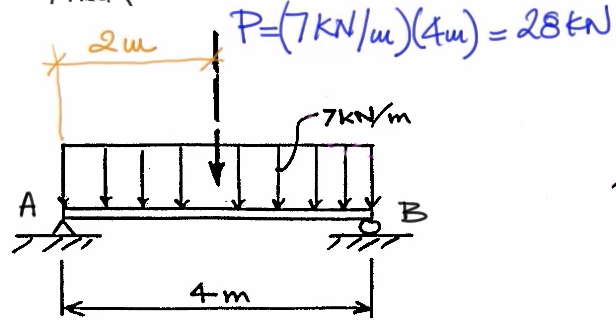 2m
P=(7KN/m)(4m) = 28KN
7KN/m
A
B
4m